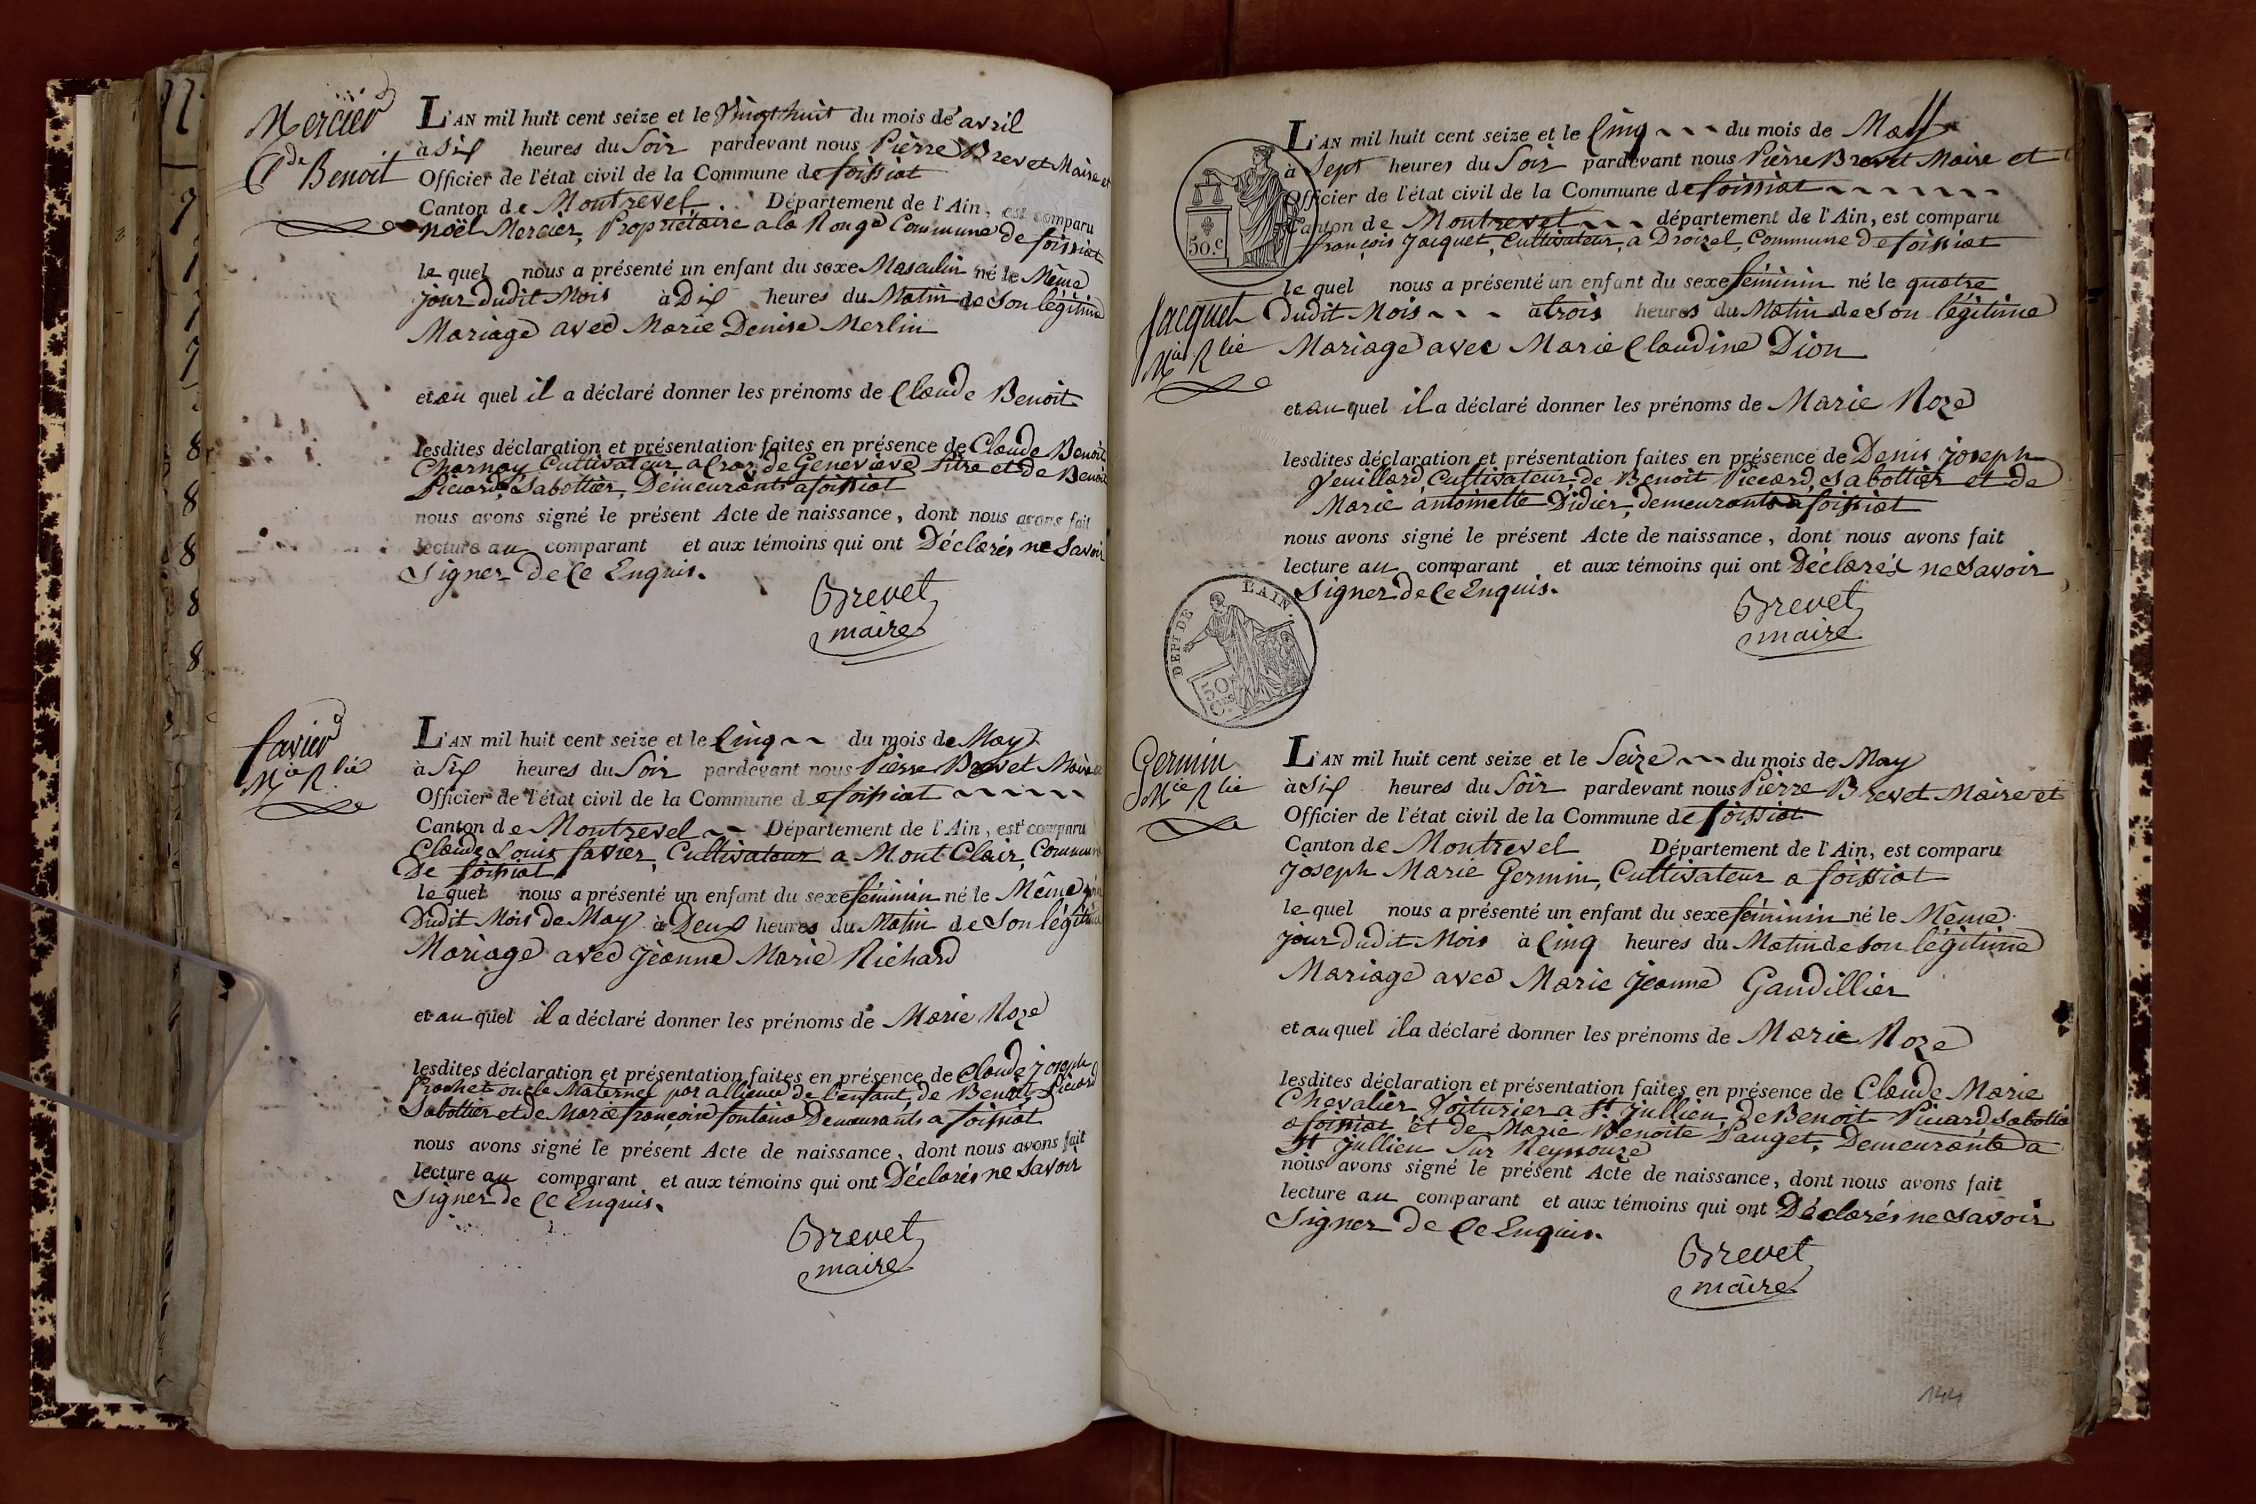 Mercier
Cde Benoit
L'AN mil huit cent seize et le Vingt huit du mois de avril
à Six heures du Soir pardevant nous Pierre Brevet Maire et
Officier de l'état civil de la Commune de foissiat
Canton de Montrevel. Département de l'Ain, est comparu
noël Mercier, Propriétaire a la Rouge Commune de foissiat
le quel nous a présenté un enfant du sexe Masculin né le Même
jour dudit Mois à Dix heures du Matin de Son légitime
Mariage avec Marie Denise Merlin
et au quel il a déclaré donner les prénoms de Claude Benoit
lesdites déclaration et présentation faites en présence de Claude Benoit
Charnay Cultivateur a Cras, de Geneviève et de Benoit
Picard, Sabottier, Demeurants a foissiat
nous avons signé le présent Acte de naissance, dont nous avons fait
lecture au comparant et aux témoins qui ont Déclarés ne Savoir
Signer de Ce Enquis.
Brevet
maire
favier
Mie Rze
L'AN mil huit cent seize et le Cinq du mois de May
à Six heures du Soir pardevant nous Pierre Brevet Maire et
Officier de l'état civil de la Commune de foissiat
Canton de Montrevel Département de l'Ain, est comparu
Claude Louis favier, Cultivateur a Mont Clair, Commune
De foissiat
le quel nous a présenté un enfant du sexe féminin né le Même jour
Dudit Mois de May à Deux heures du Matin de Son légitime
Mariage avec Jeanne Marie Richard
et au quel il a déclaré donner les prénoms de Marie Roze
lesdites déclaration et présentation faites en présence de Claude joseph
Prochet oncle Maternel par allience de l'enfant, de Benoit Picard
Sabottier et de Marie françoise fontaine Demeurants a foissiat
nous avons signé le présent Acte de naissance, dont nous avons fait
lecture au comparant et aux témoins qui ont Déclarés ne Savoir
Signer de Ce Enquis.
Brevet
maire
50.c
L'AN mil huit cent seize et le Cinq du mois de May
à Sept heures du Soir pardevant nous Pierre Brevet Maire et
Officier de l'état civil de la Commune de foissiat
Canton de Montrevel département de l'Ain, est comparu
françois Jacquet, Cultivateur, a Droizel, Commune De foissiat
le quel nous a présenté un enfant du sexe féminin né le quatre
Jacquet
Mie Rze
dudit Mois à trois heures du Matin de Son légitime
Mariage avec Marie Claudine Dion
et au quel il a déclaré donner les prénoms de Marie Roze
lesdites déclaration et présentation faites en présence de Denis joseph
Jeuillard, Cultivateur, de Benoit Piccard, Sabottier et de
Marie antoinette Didier, demeurants a foissiat
nous avons signé le présent Acte de naissance, dont nous avons fait
lecture au comparant et aux témoins qui ont Déclarés ne Savoir
Signer de Ce Enquis.
DEPT DE L'AIN.
50
Cmes
Brevet
maire
Germin
Mie Rze
L'AN mil huit cent seize et le Seize du mois de May
à Six heures du Soir pardevant nous Pierre Brevet Maire et
Officier de l'état civil de la Commune de foissiat
Canton de Montrevel Département de l'Ain, est comparu
joseph Marie Germin, Cultivateur a foissiat
le quel nous a présenté un enfant du sexe féminin né le Même
jour dudit Mois à Cinq heures du Matin de Son légitime
Mariage avec Marie Jeanne Gaudillier
et au quel il a déclaré donner les prénoms de Marie Roze
lesdites déclaration et présentation faites en présence de Claude Marie
Chevalier, Voiturier a St. jullien, De Benoit Picard Sabottier
a foissiat et de Marie Benoite Pauget, Demeurante a
St jullien Sur Reyssouze
nous avons signé le présent Acte de naissance, dont nous avons fait
lecture au comparant et aux témoins qui ont Déclarés ne Savoir
Signer de Ce Enquis.
Brevet
maire
144